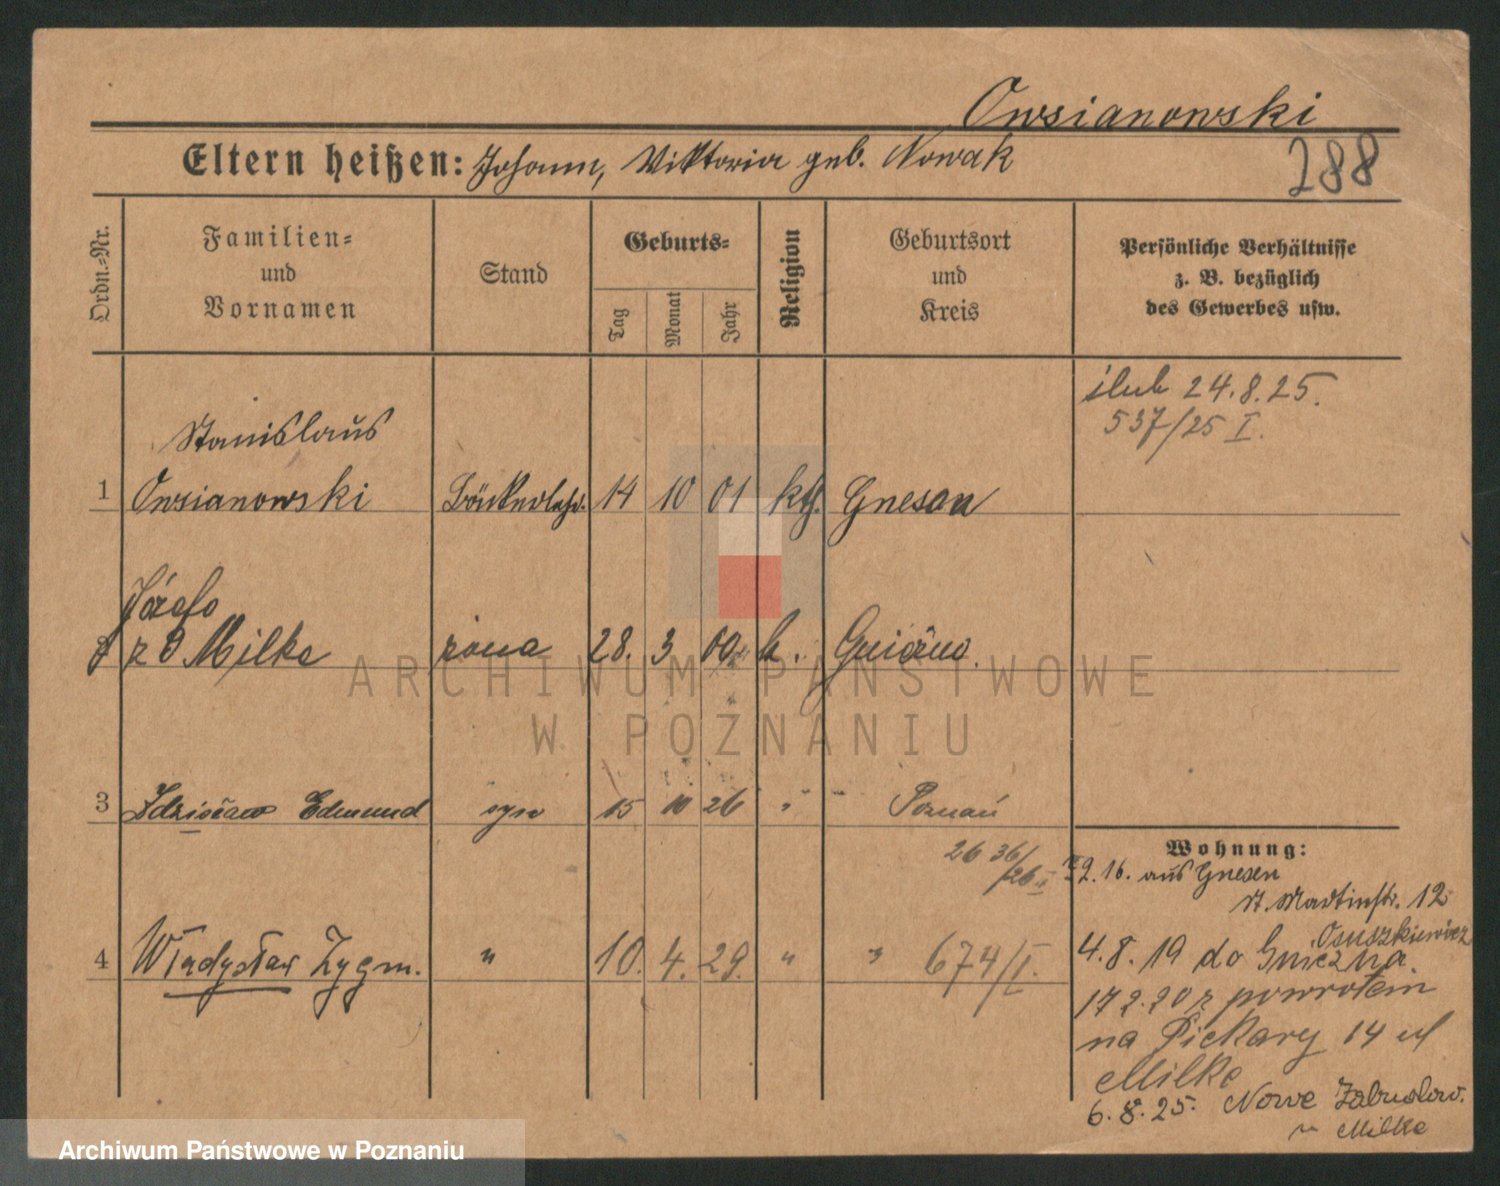 Owsianowski
Eltern heißen: Johann, Viktoria geb. Nowak
288
Ordn.-Nr.
Familien-
und
Vornamen
Stand
Geburts-
Tag
Monat
Jahr
Religion
Geburtsort
und
Kreis
Persönliche Verhältnisse
z. B. bezüglich
des Gewerbes usw.
ślub 24.8.25.
537/25 I.
Stanislaus
1 Owsianowski 14 10 01 kth. Gnesen
Józefa
z d Milke żona 28. 3 00 k.
3 Zdzisław Edmund syn 15 10 26 " " Poznań
26 36/26
4 Władysław Zygm. " 10. 4. 29. " " 674/I.
Wohnung:
2. 16. aus Gnesen
St. Martinstr. 12
Osuszkiewicz
4.8.19 do Gniezna.
17 2.20 z powrotem
na Piekary 14 u
Milke
6.8.25. Nowe
u Milke
ARCHIWUM PAŃSTWOWE
W POZNANIU
Archiwum Państwowe w Poznaniu